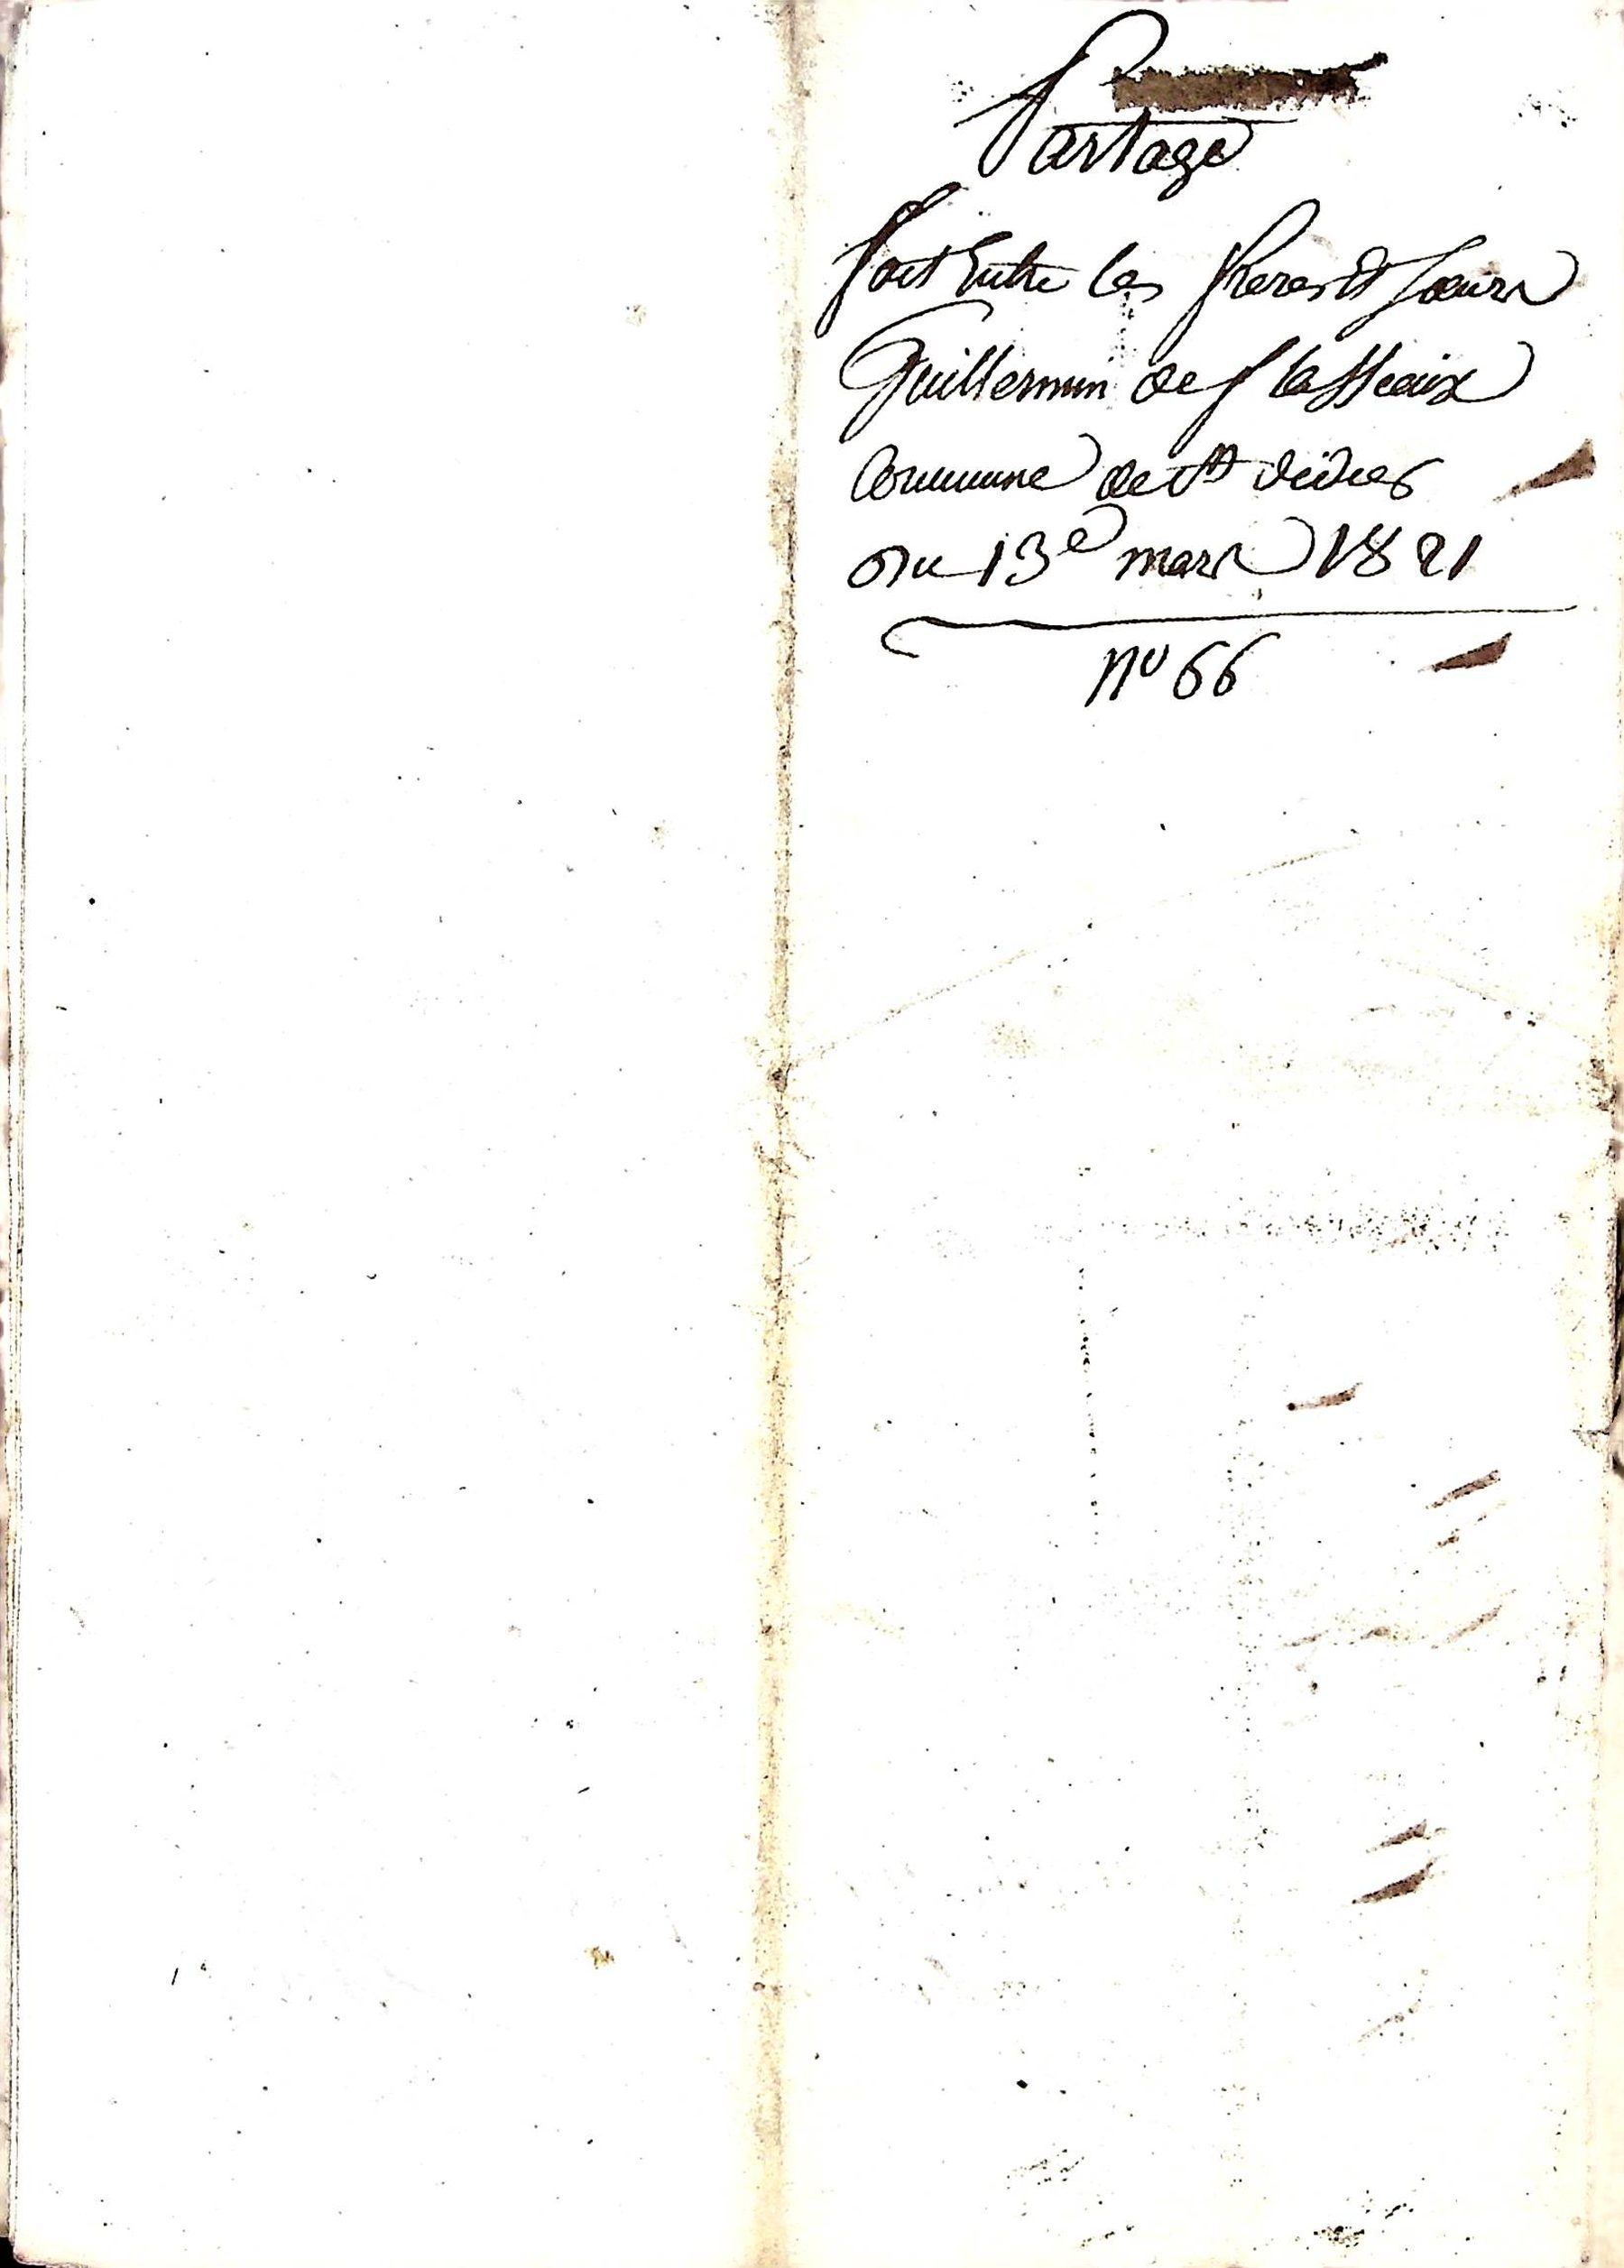 Partage
fait Entre les freres et soeurs
Guillermin de
Commune de St didier
Du 13e mars 1821
no 66